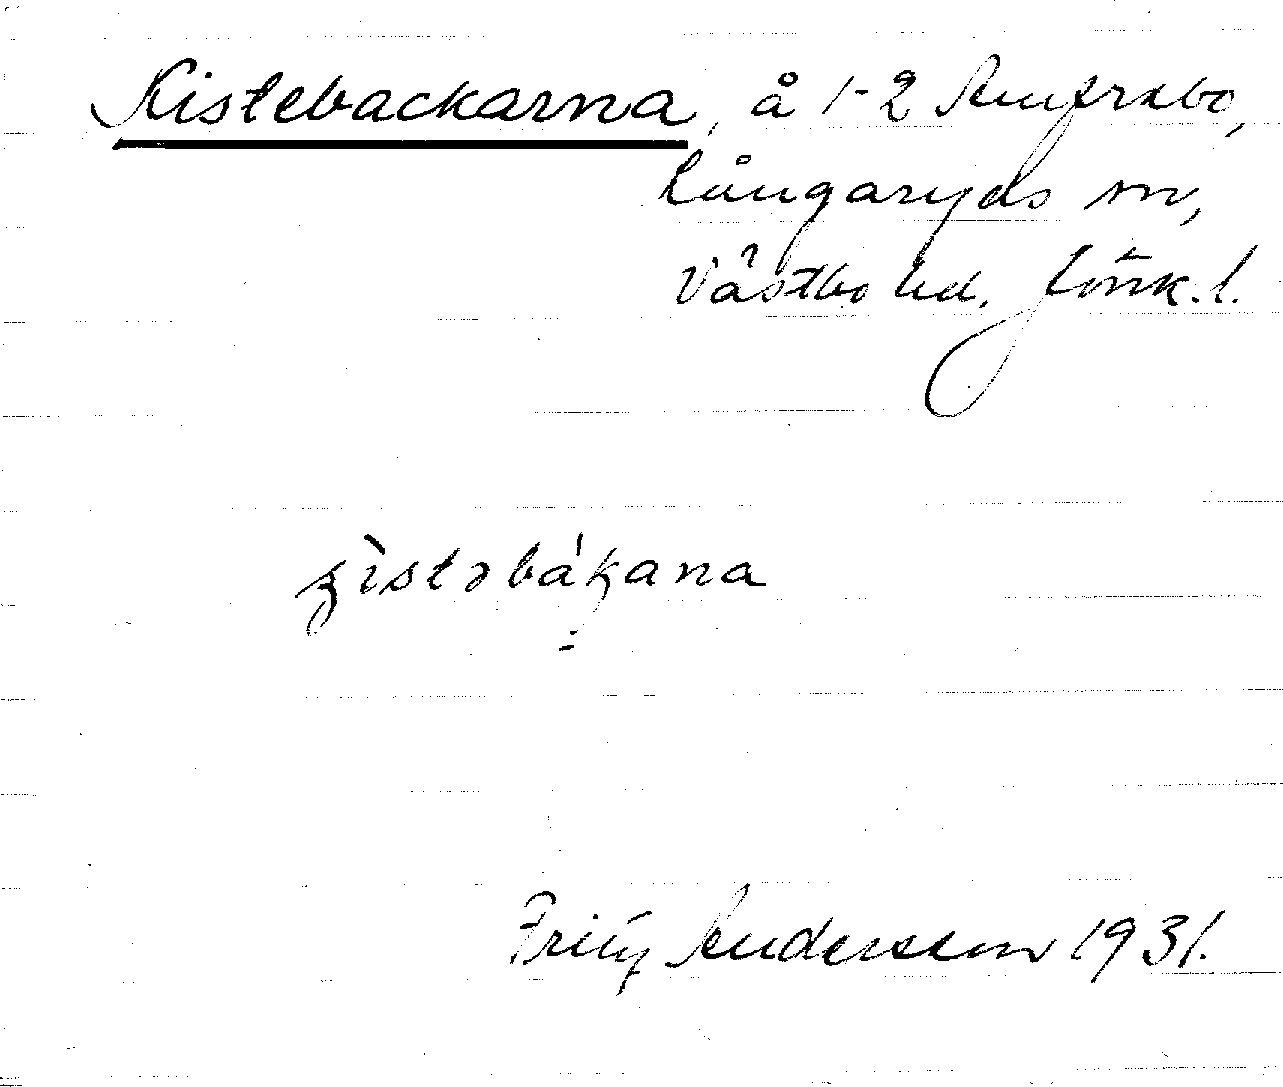 Kistebackarna, å 1-2
Långaryds sn,
Västbo hd. Jönk. l.
Fritz Andersson 1931.